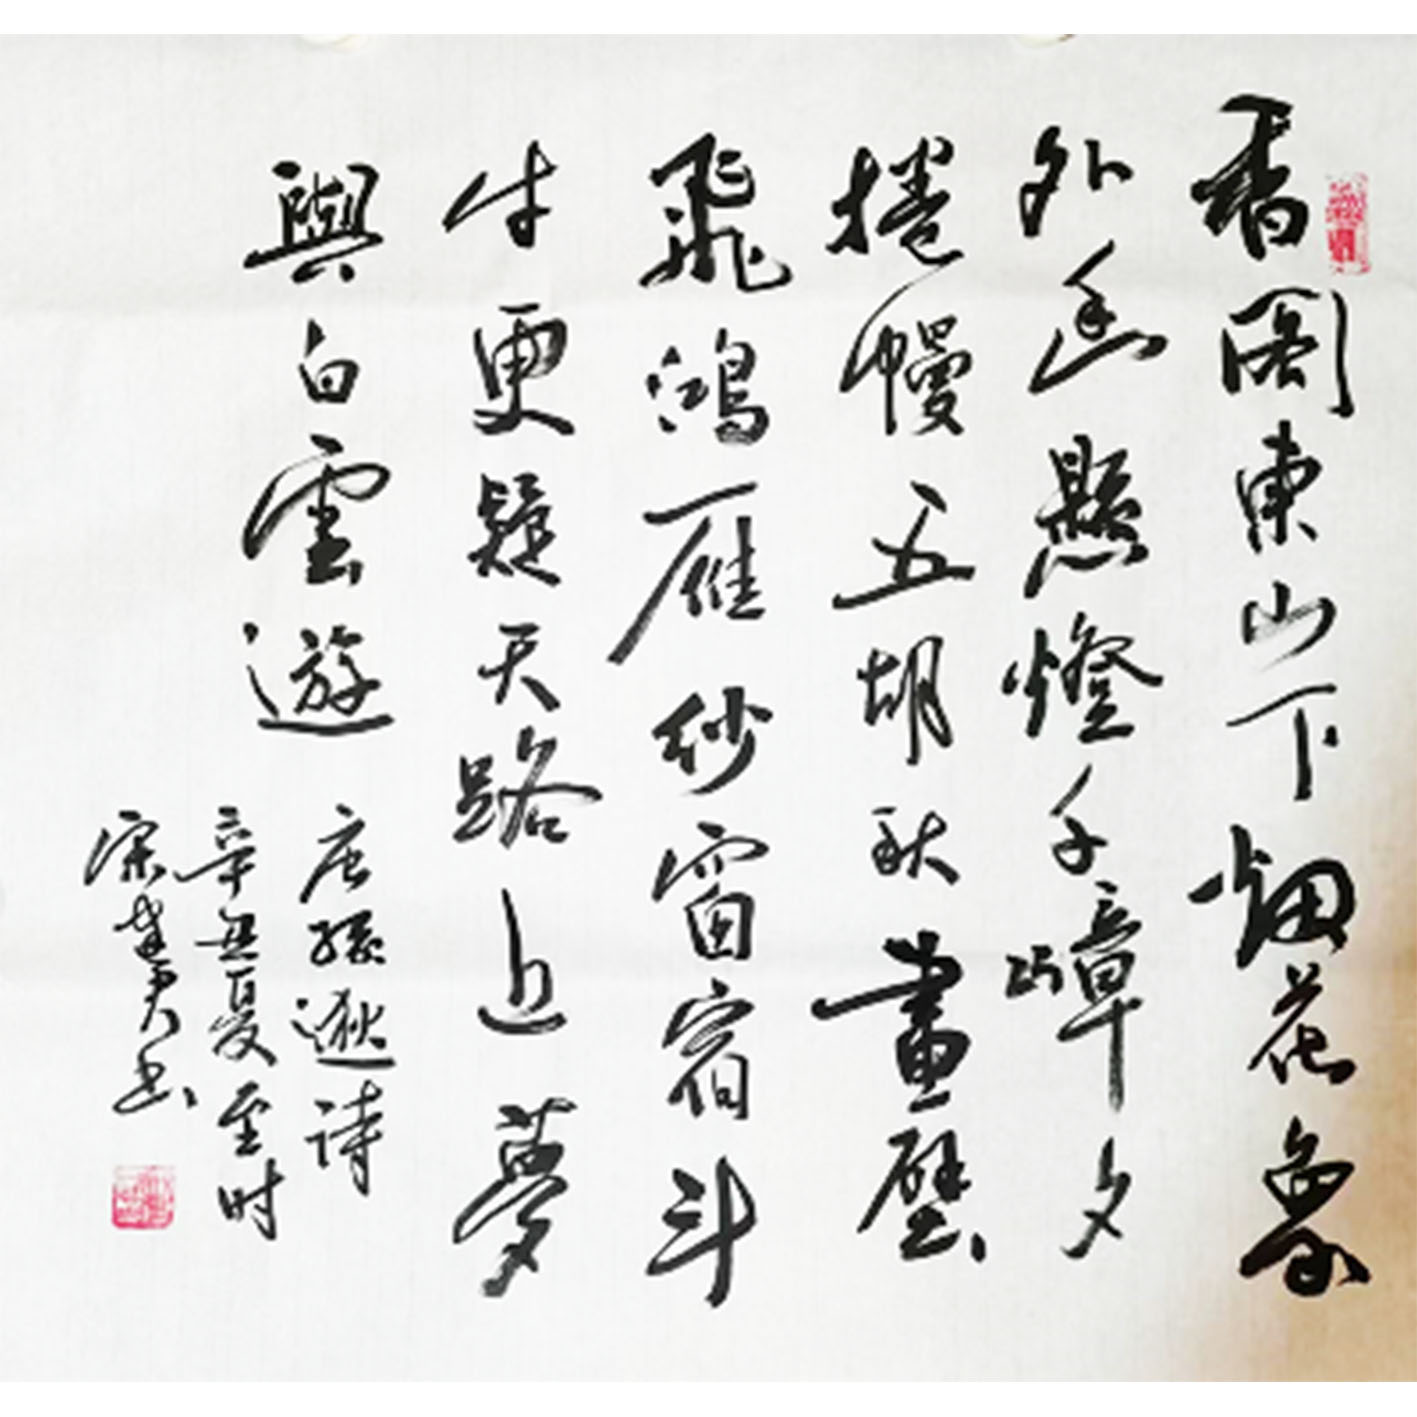 香閣東山下烟花象
外幽懸燈千嶂夕
捲幔五胡秋畫壁
飛鴻雁紗窗宿斗
牛更疑天路近夢
與白雲遊
唐孫逖詩
辛丑夏至时
宋书